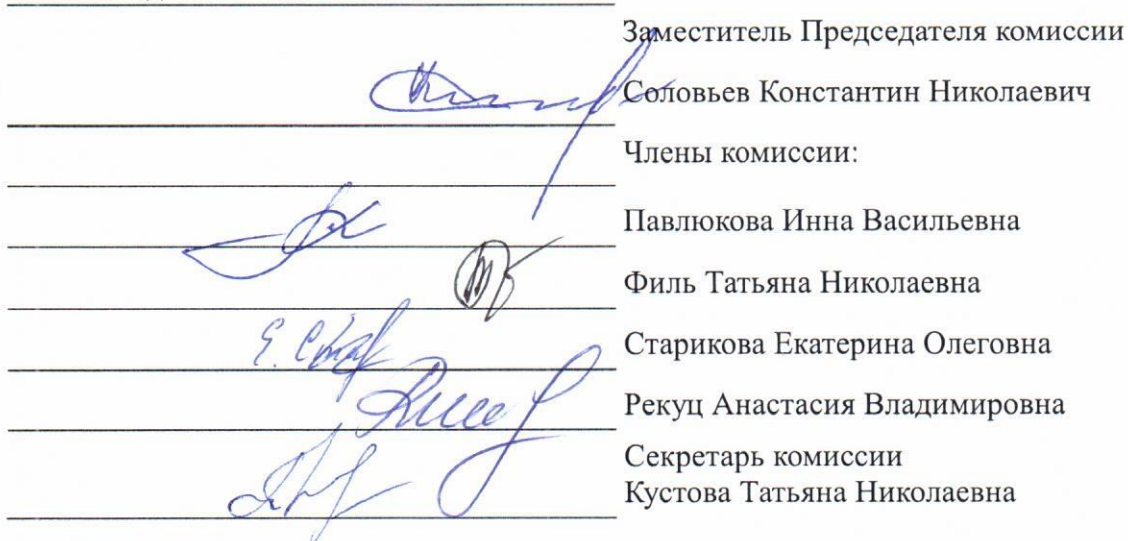 Заместитель Председателя комиссии
Соловьев Константин Николаевич
Члены комиссии:
Павлюкова Инна Васильевна
Филь Татьяна Николаевна
Е. Стар
Старикова Екатерина Олеговна
Рекуц Анастасия Владимировна
Секретарь комиссии
Кустова Татьяна Николаевна